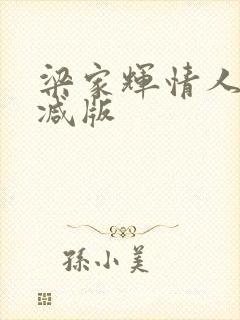 梁家輝情人
减版
孫小美